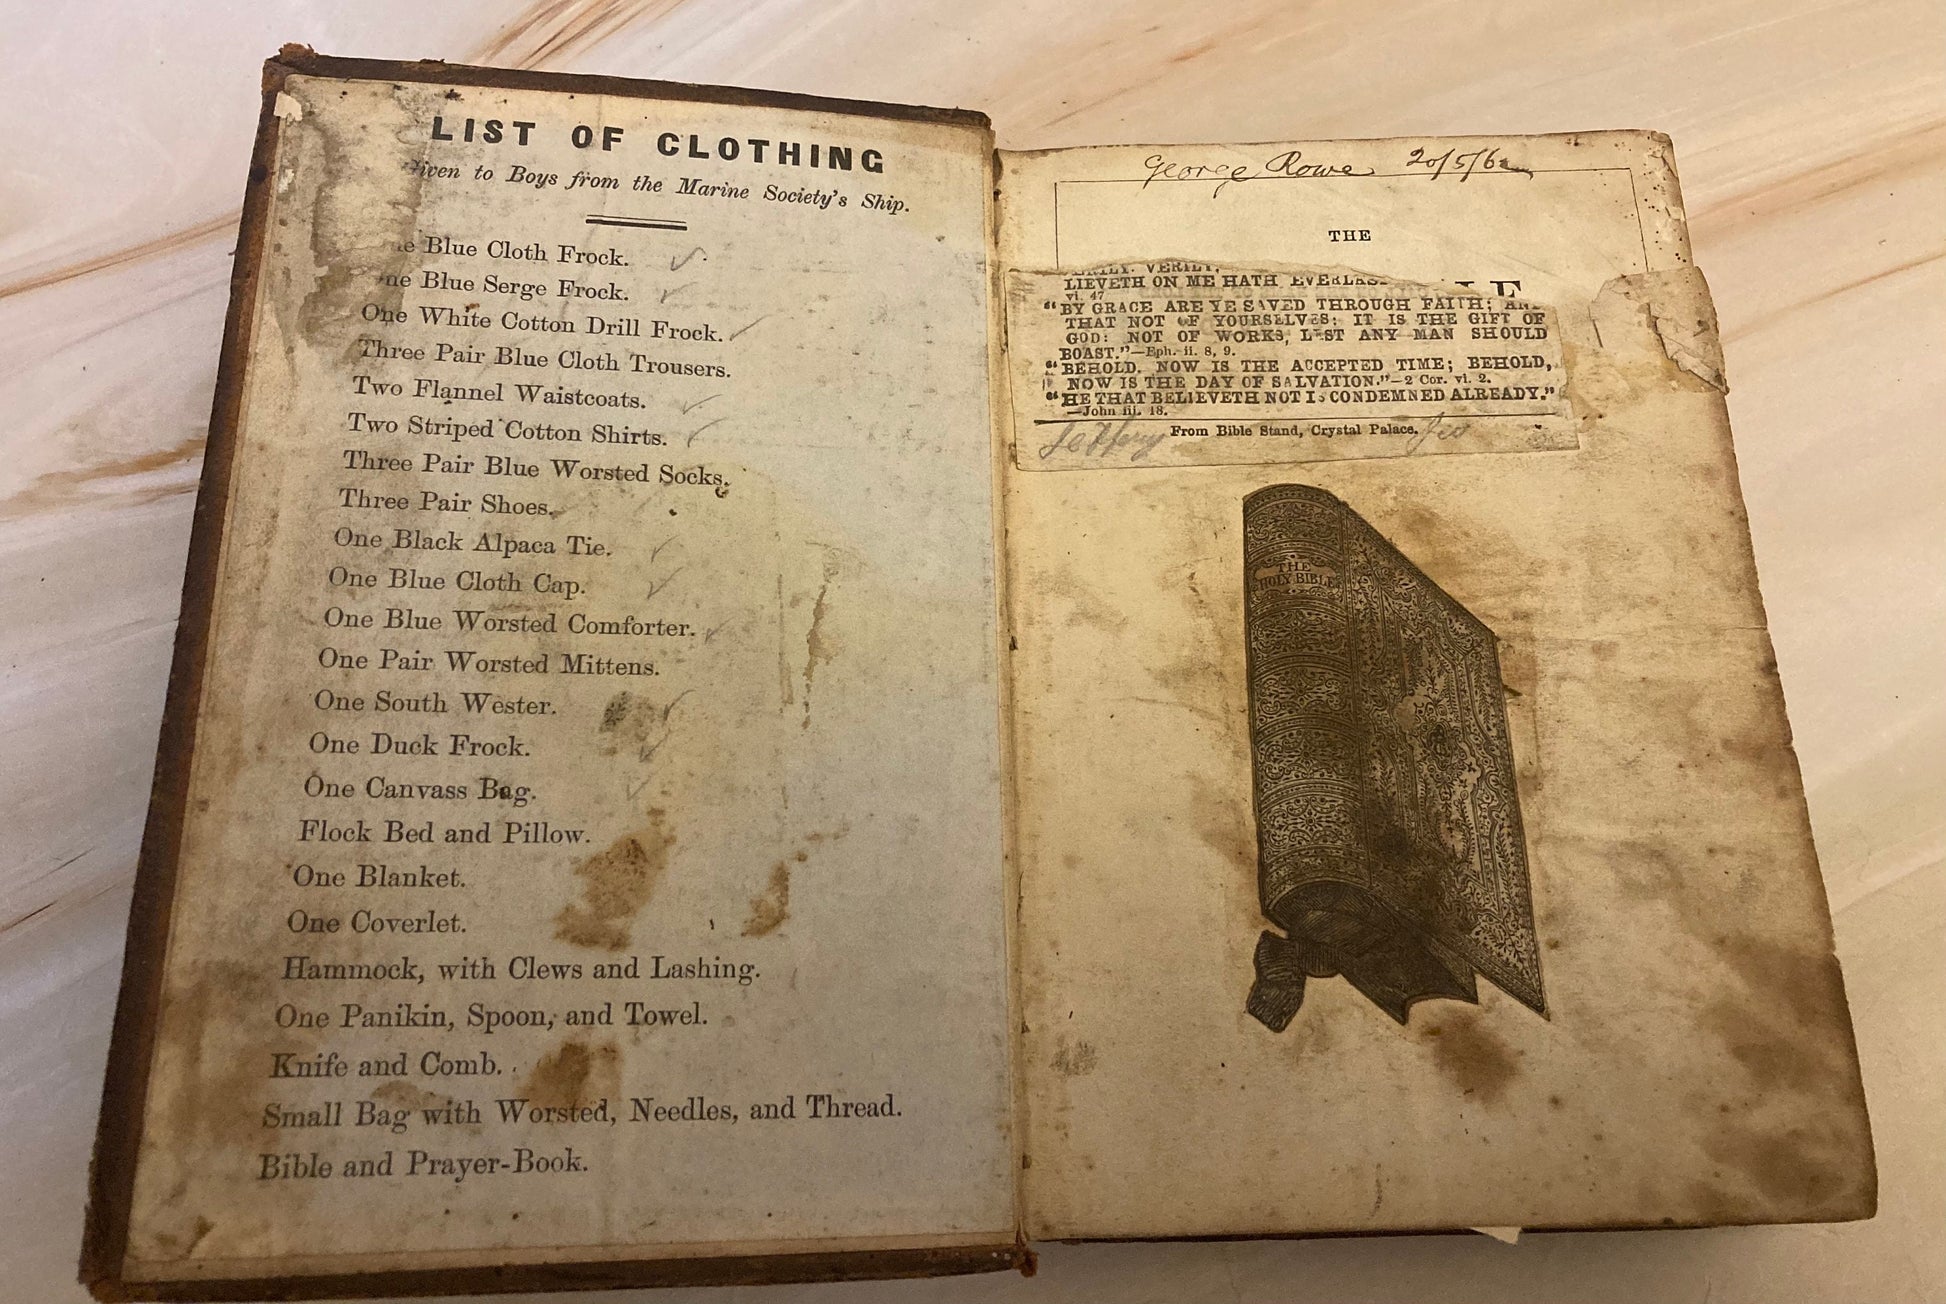 LIST OF CLOTHING
Given to Boys from the Marine Society's Ship.
One Blue Cloth Frock.
One Blue Serge Frock.
One White Cotton Drill Frock.
Three Pair Blue Cloth Trousers.
Two Flannel Waistcoats.
Two Striped Cotton Shirts.
Three Pair Blue Worsted Socks.
Three Pair Shoes.
One Black Alpaca Tie.
One Blue Cloth Cap.
One Blue Worsted Comforter.
One Pair Worsted Mittens.
One South Wester.
One Duck Frock.
One Canvass Bag.
Flock Bed and Pillow.
One Blanket.
One Coverlet.
Hammock, with Clews and Lashing.
One Panikin, Spoon, and Towel.
Knife and Comb.
Small Bag with Worsted, Needles, and Thread.
Bible and Prayer-Book.
George Rowe
THE
VERILY,
LIEVETH ON ME HATH
vi. 47
"BY GRACE ARE YE SAVED THROUGH FAITH; AND
THAT NOT OF YOURSELVES: IT IS THE GIFT OF
GOD: NOT OF WORKS, LEST ANY MAN SHOULD
BOAST."—Eph. ii. 8, 9.
"BEHOLD, NOW IS THE ACCEPTED TIME; BEHOLD,
NOW IS THE DAY OF SALVATION."—2 Cor. vi. 2.
"HE THAT BELIEVETH NOT IS CONDEMNED ALREADY."
—John iii. 18.
From Bible Stand, Crystal Palace.
THE
HOLY BIBLE